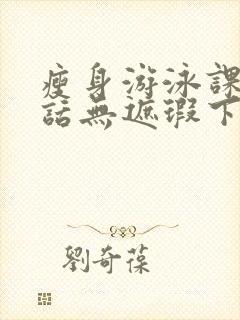 瘦身游泳課
話無遮瑕下
劉奇葆